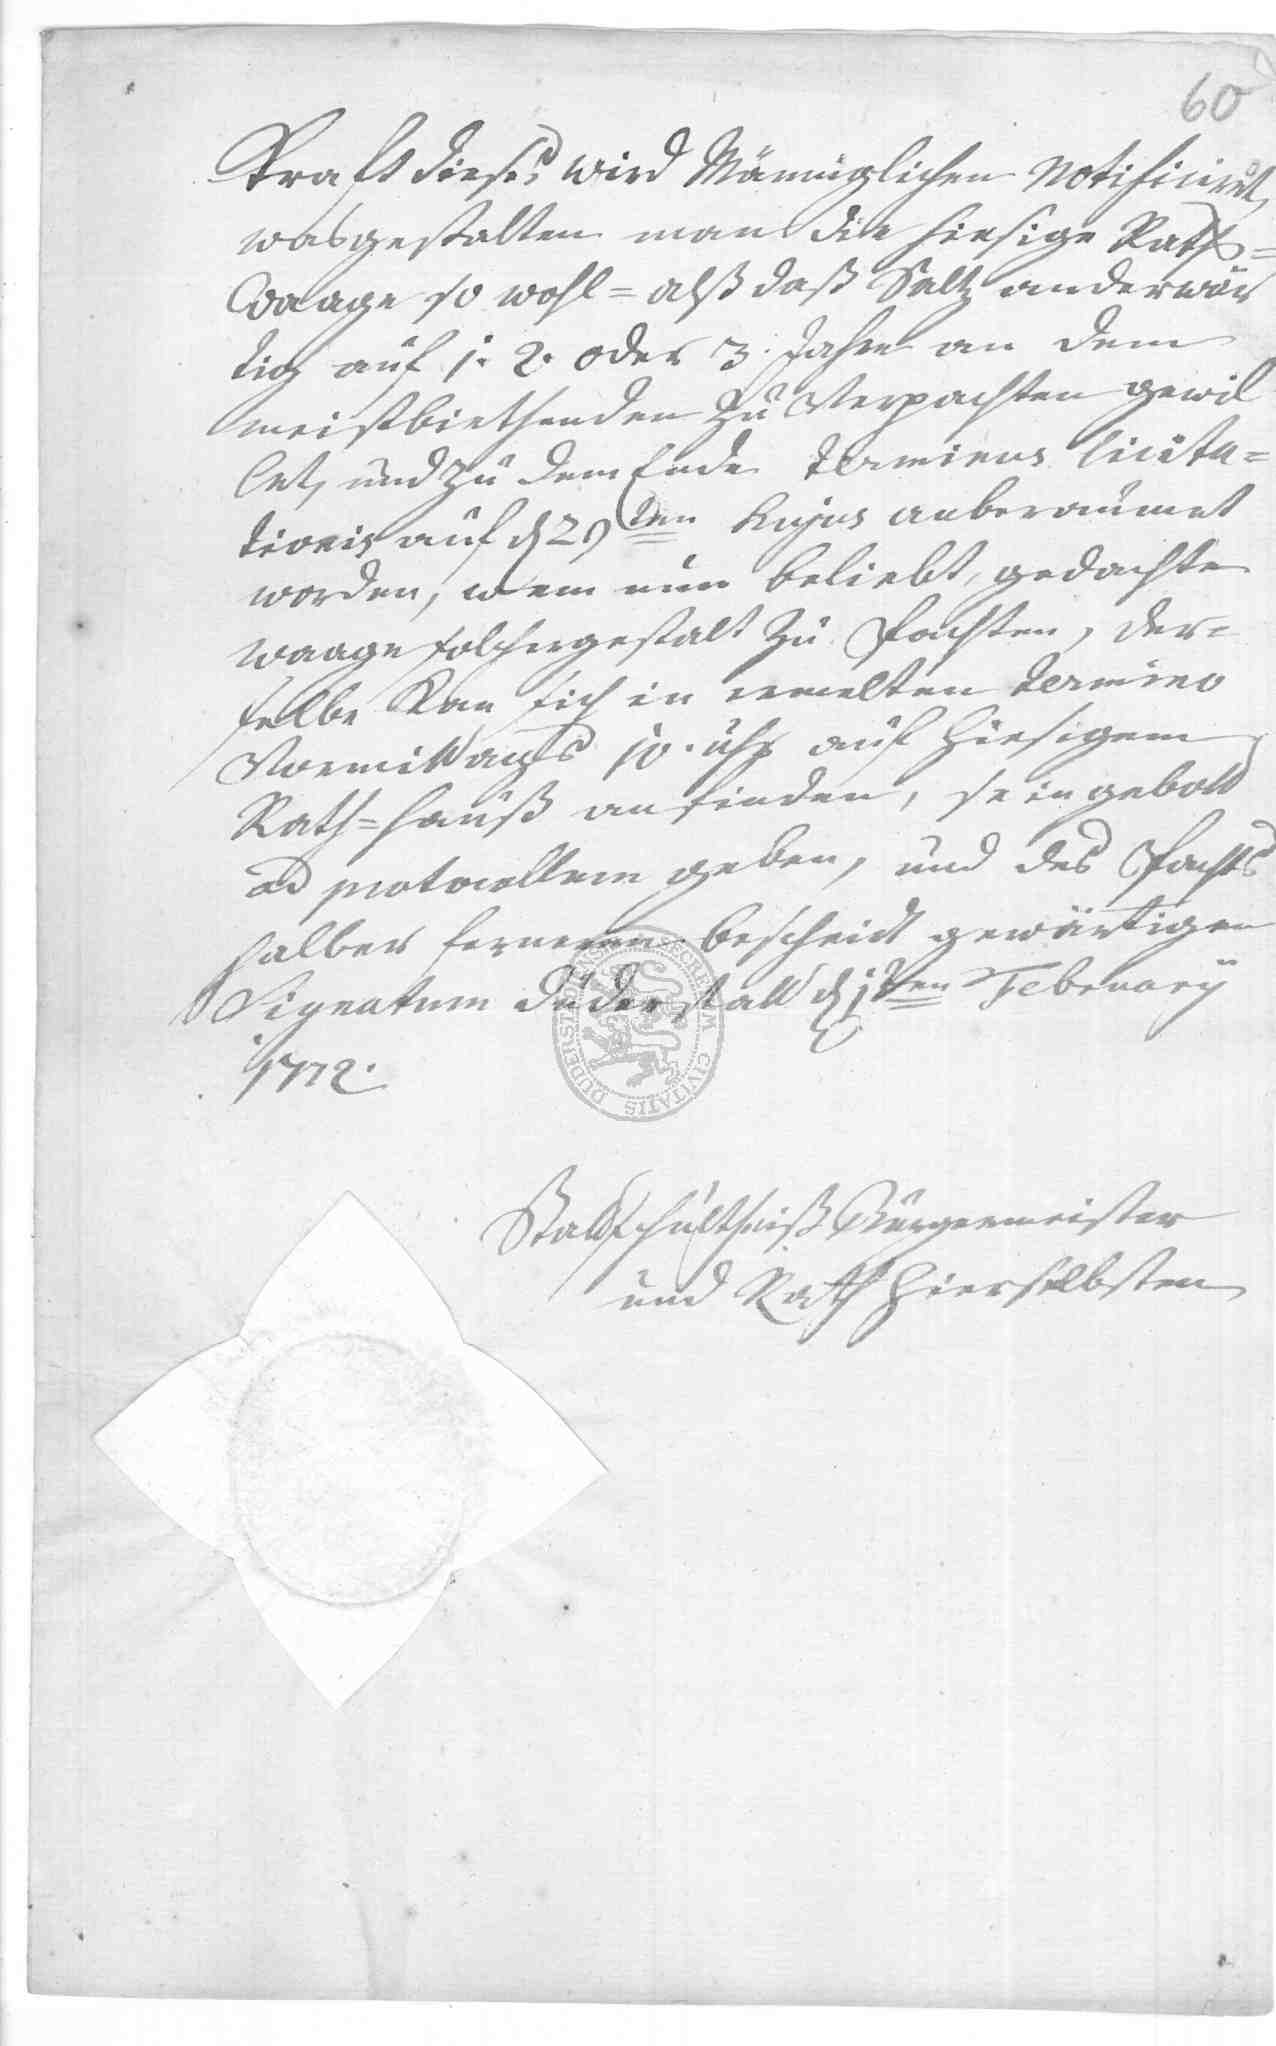 60
Kraft dieses wird Männiglichen Notificiret,
wasgestalten man die hiesige Raths=
Waage so wohl= alß daß Saltz anderwär
tig auf 1. 2. oder 3. Jahre an dem
meistbiethenden zu Verpachten gewil
let, und zu dem Ende Terminus licita=
tionis auf d 29ten hujus anberaumet
worden, wem nun beliebt, gedachte
waage solchergestalt zu Pachten, der=
selbe kan sich in ermelten Termino
Vormittags 10. uhr auf hiesigem
Rath=hauß anfinden, sein gebott
ad protocollum geben, und des Pachts
halber ferneren bescheidt gewärtigen
Signatum Duderstatt d 12ten February
1772.
Stattschultheiß Bürgermeister
und Rath hierselbsten
SECRETUM CIVITATIS DUDERSTADENSIS